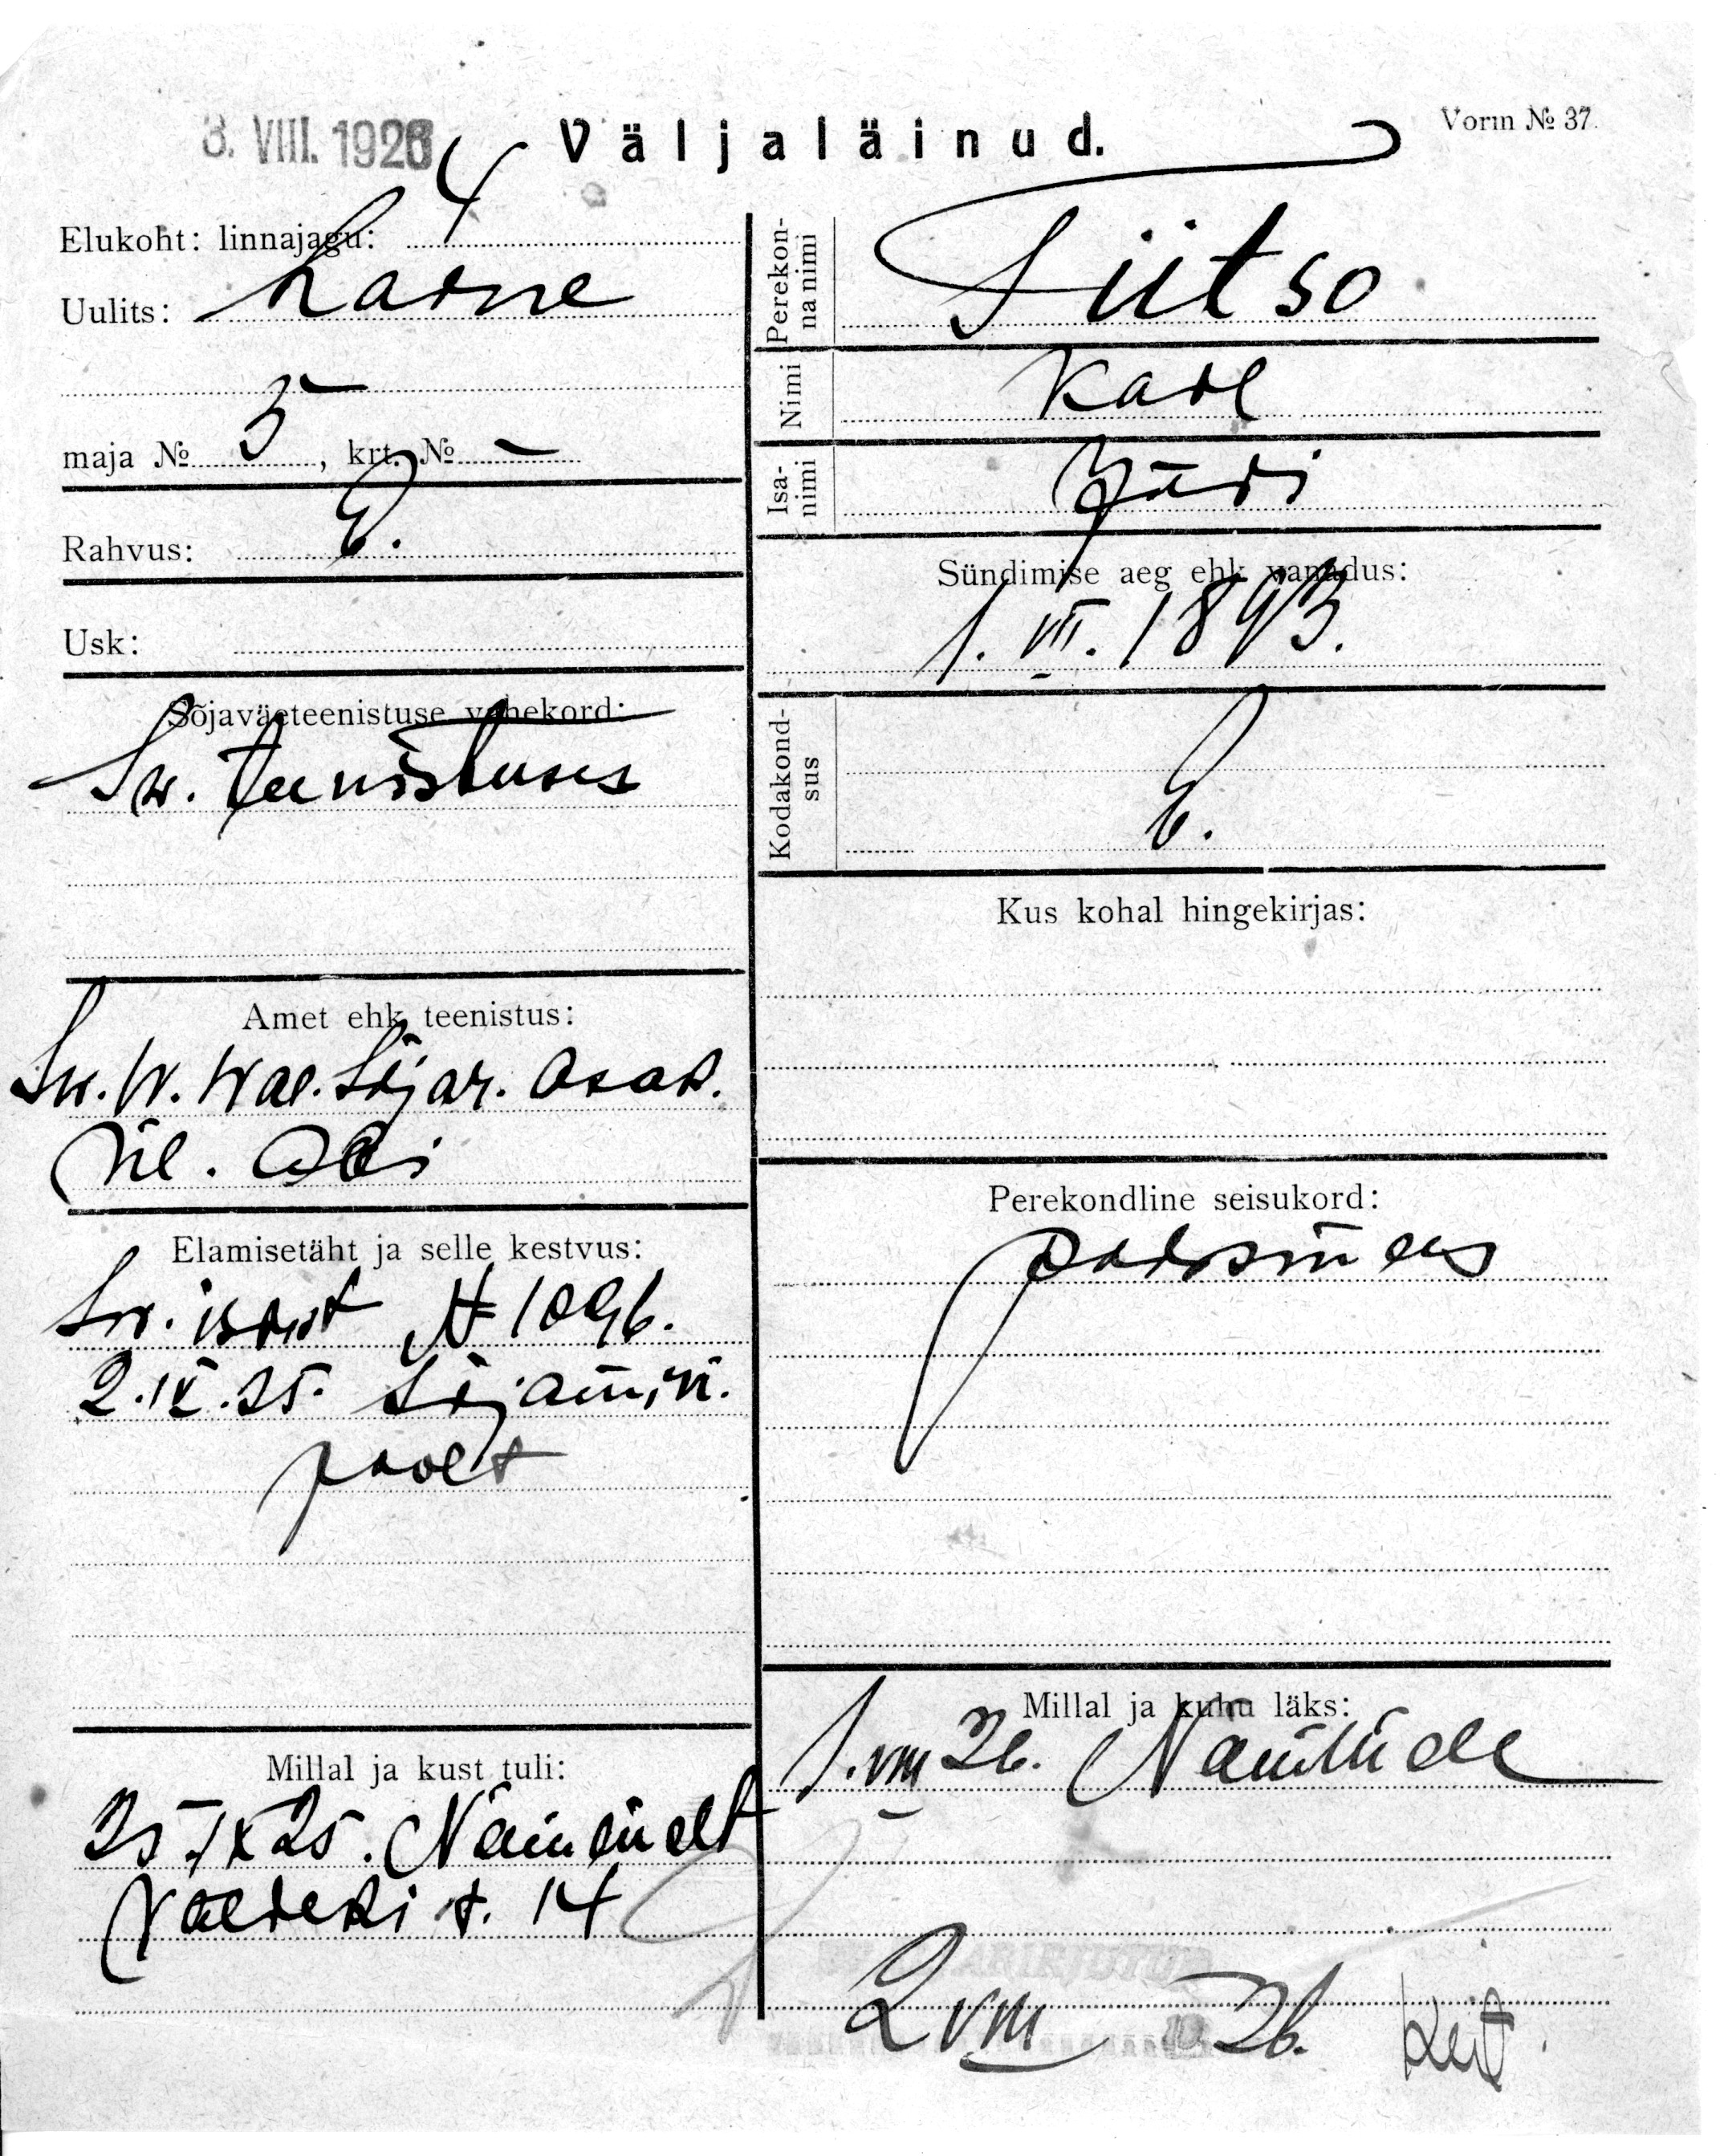 3. VIII. 1926
Väljaläinud.
Vorm № 37.
Elukoht: linnajagu: 4
Uulits: Laine
maja № 5, krt. № –
Rahvus: E.
Usk:
Sõjaväeteenistuse vahekord:
Sv. teenistuses
Amet ehk teenistus:
Sõjav. Osak.
Elamisetäht ja selle kestvus:
№ 1096.
2.IX.25. Sõjamin.
poolt
Millal ja kust tuli:
25.IX 25. Nõmmelt
Valdeki t. 14
Perekonna nimi
Tiitso
Nimi
Karl
Isanimi
Jüri
Sündimise aeg ehk vanadus:
1. VII. 1893.
Kodakondsus
E.
Kus kohal hingekirjas:
Perekondline seisukord:
poissmees
Millal ja kuhu läks:
1. VIII 26. Nõmmele
2 VIII 26.